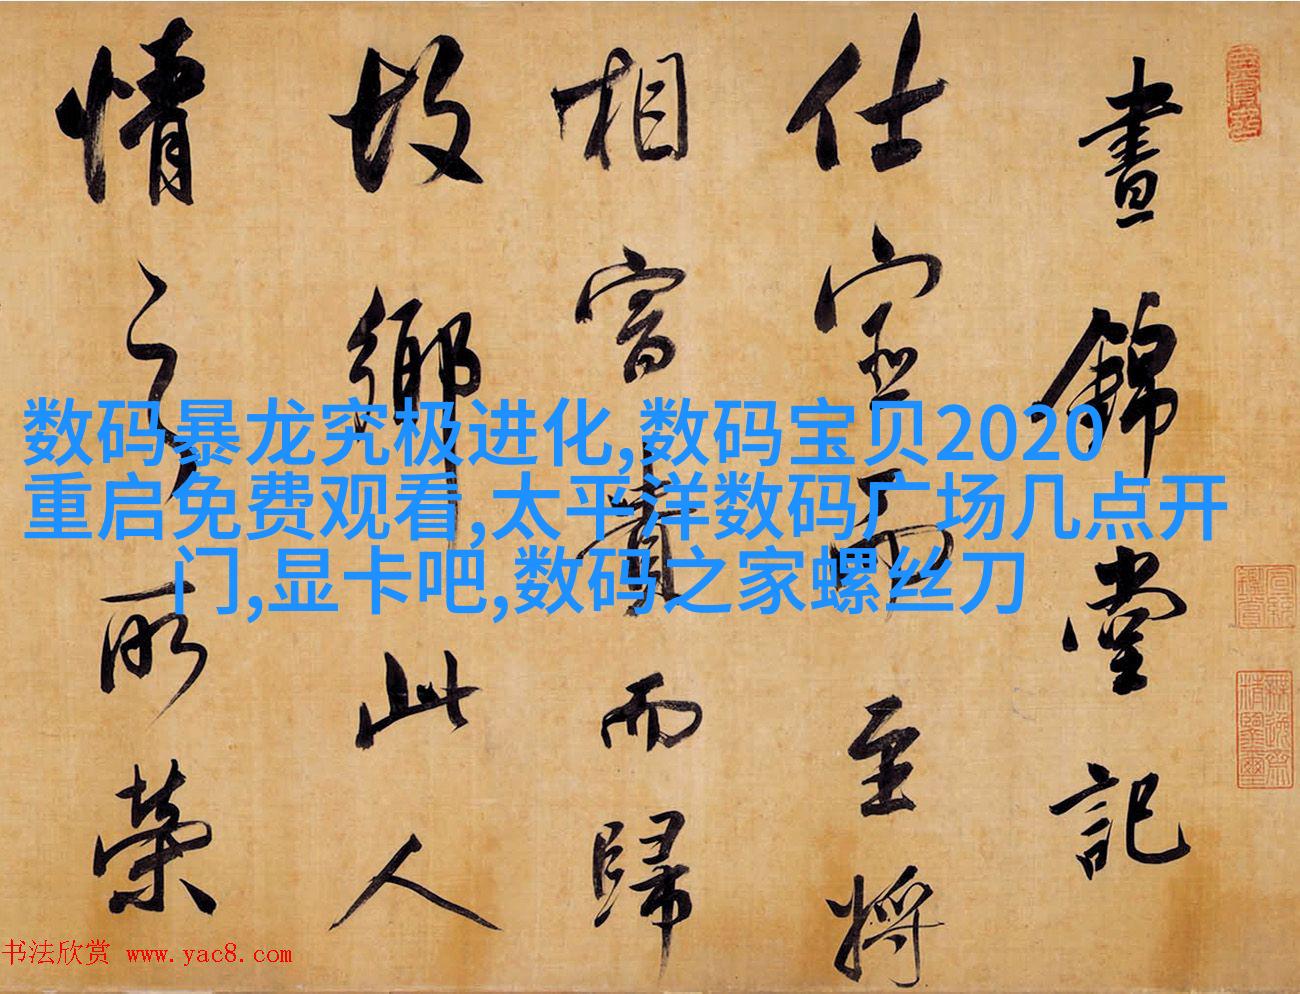 晝錦堂記
仕宦而至將
相富貴而歸
故鄉此人
情之所榮
数码暴龙究极进化,数码宝贝2020
重启免费观看,太平洋数码广场几点开
门,显卡吧,数码之家螺丝刀
书法欣赏 www.yac8.com